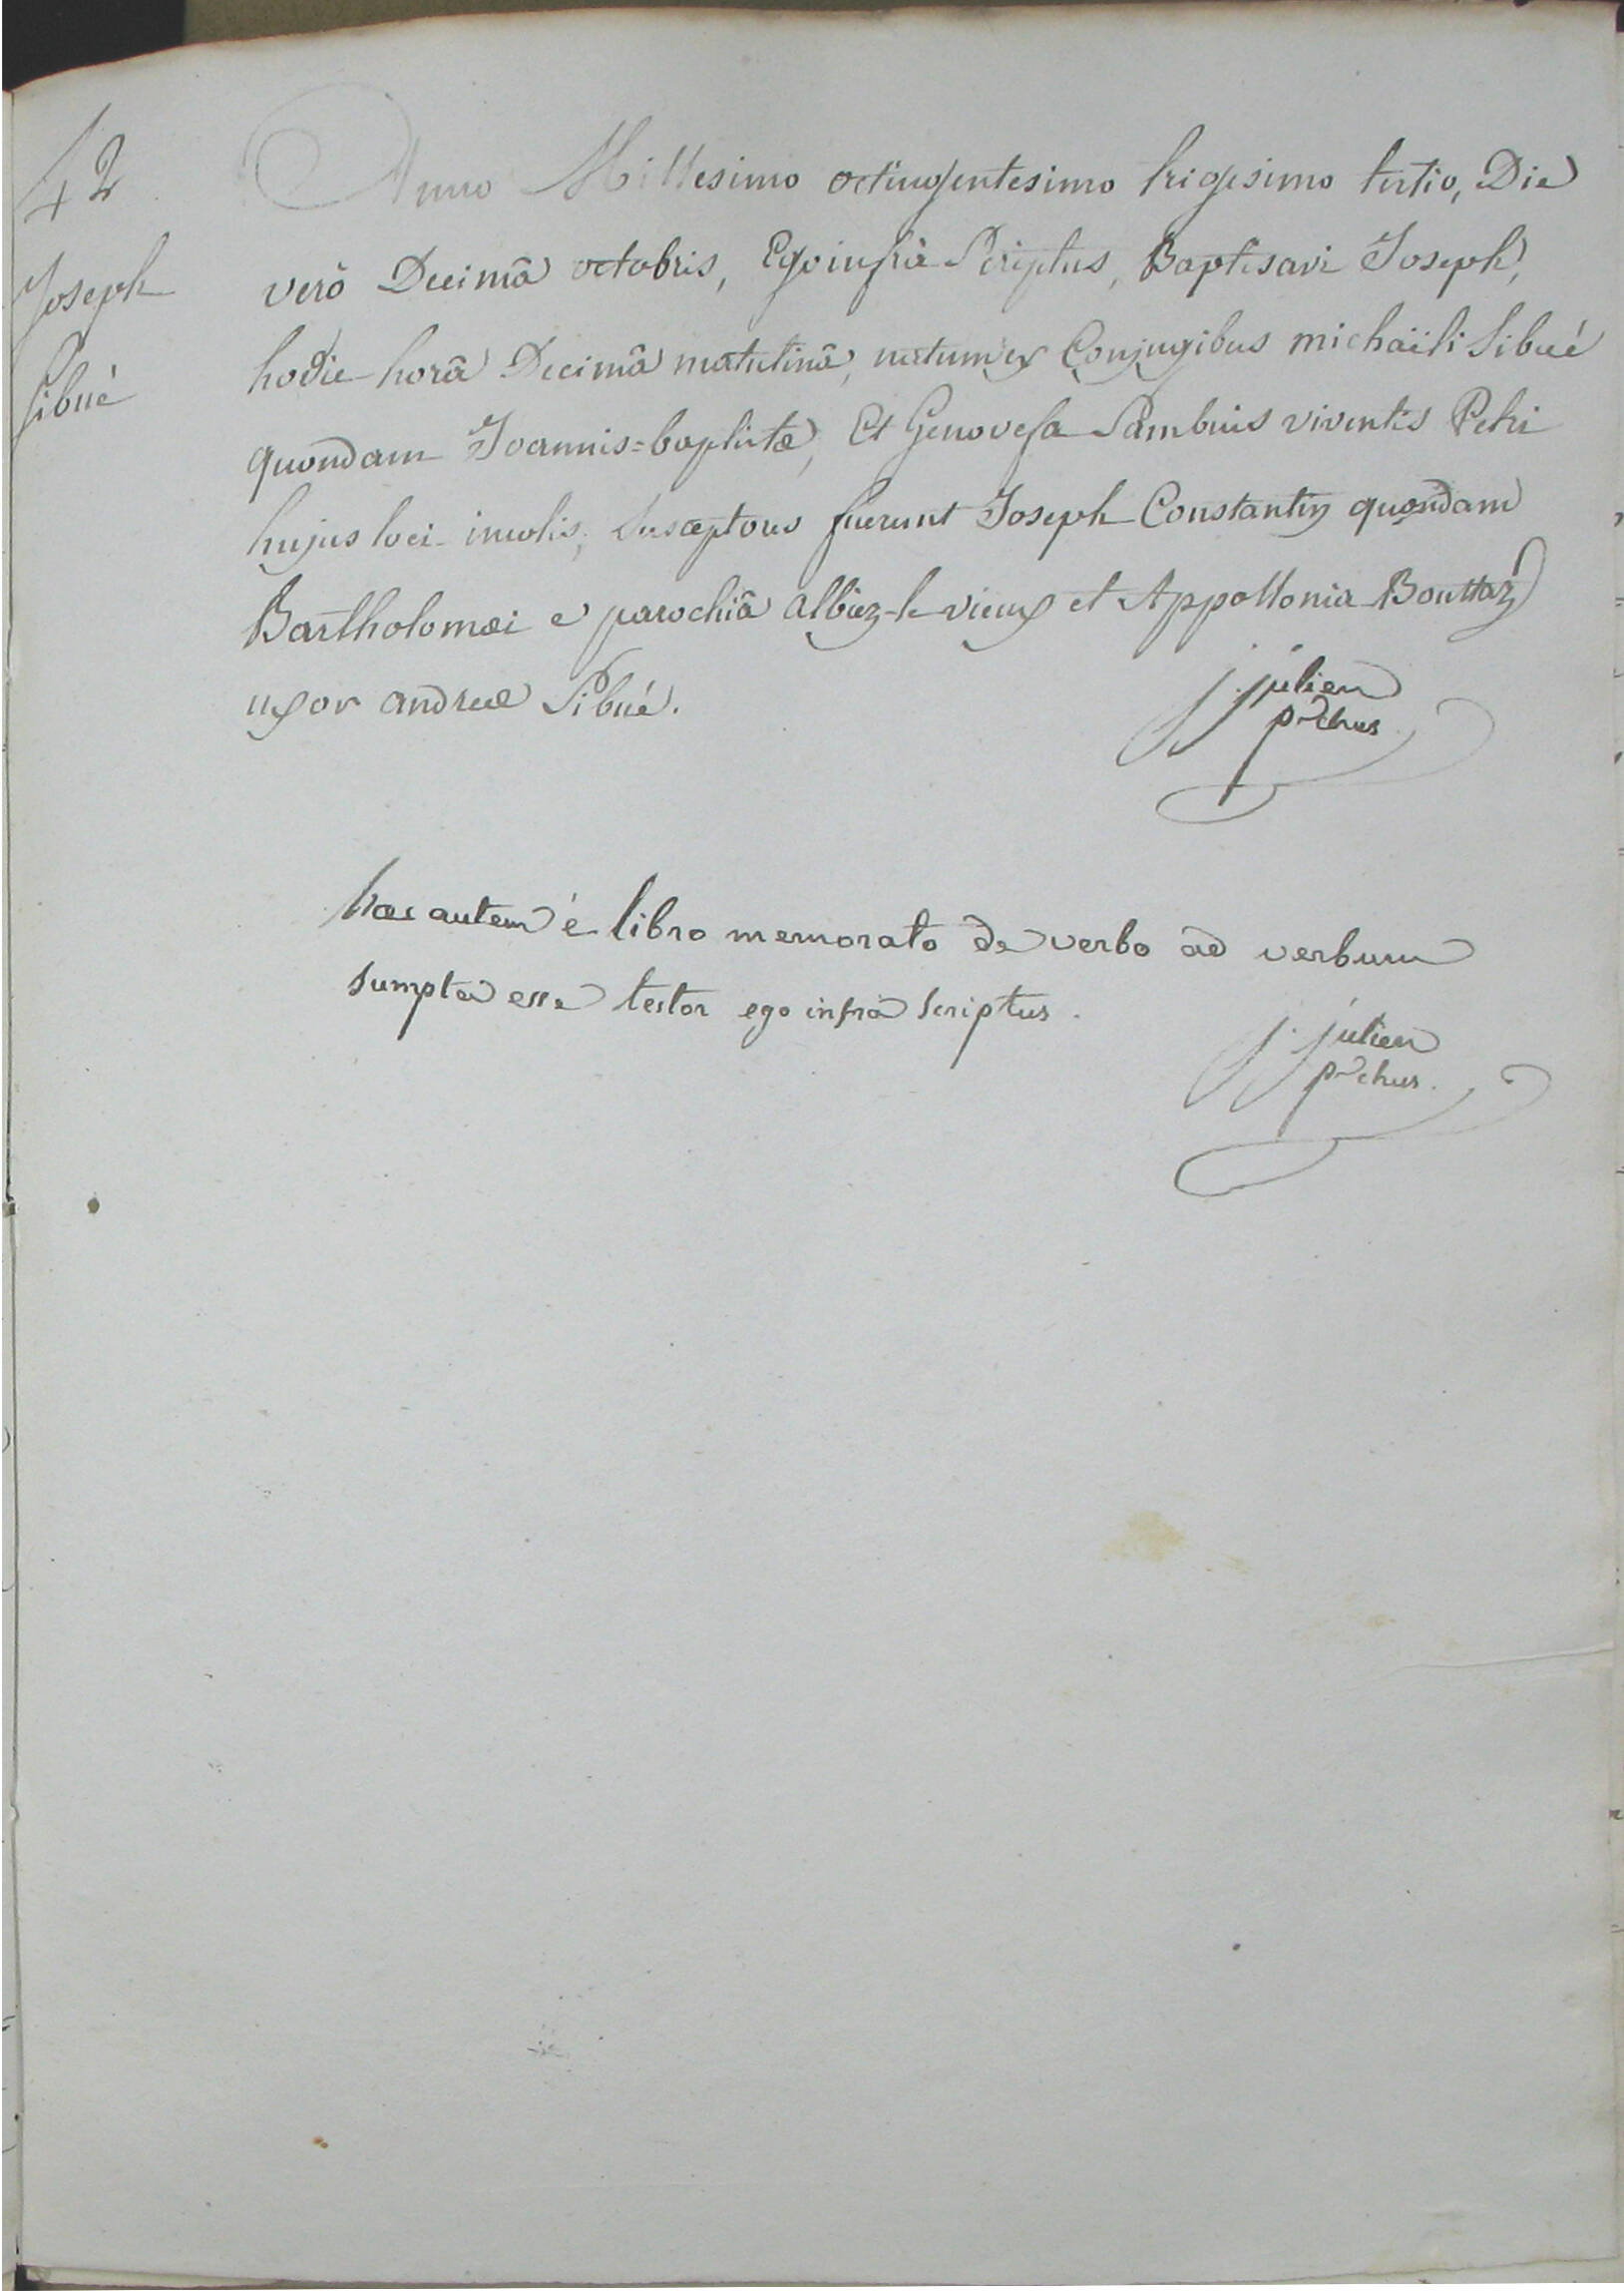 42
Joseph
Sibué
Anno Millesimo octingentesimo trigesimo tertio, Die
verò Decimâ octobris, Ego infrà Scriptus, Baptisavi Joseph,
hodie horâ Decimâ matutinâ, natum ex Conjugibus michaëli Sibué
quondam Joannis=baptistæ, Et Genovefa Sambuis viventis Petri
hujus loci incolis; Susceptores fuerunt Joseph Constantin quondam
Bartholomæi e parochiâ albiez-le vieux et Appollonia Bouttaz
uxor andreæ Sibué.
j. julien
p~chus
hæc autem è libro memorato de verbo ad verbum
sumpta esse testor ego infrà scriptus.
j. julien
p~chus.